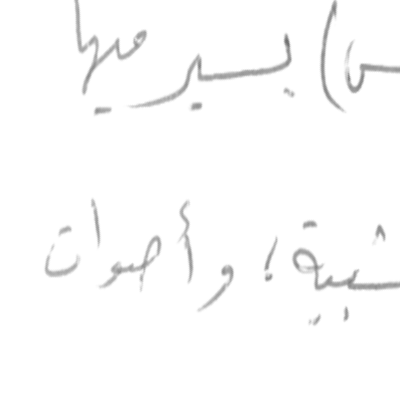 س) يسير فيها
شبية ؛ وأصوات